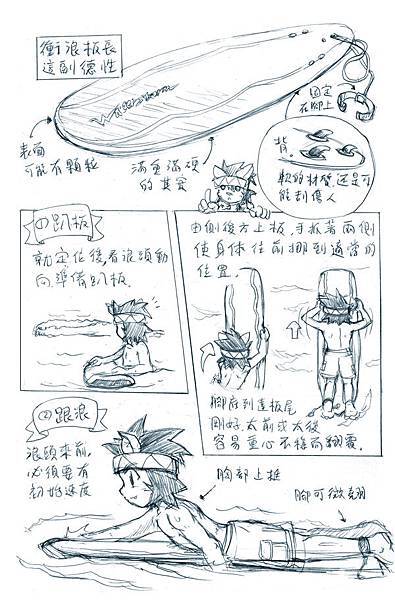 衝浪板長
這副德性
固定
在腳上
表面
可能有顆粒
滿重滿硬
的其實
背。
軟的材質,還是可
能刮傷人
(1)趴板
就定位後,看浪頭動
向,準備趴板.
由側後方上板,手扳著兩側
使身體往前挪到適當的
位置.
腳底到達板尾
剛好,太前或太後
容易重心不穩而翻覆.
跟浪
浪頭來前,
必須要有
初始速度
胸部上挺
腳可微翹